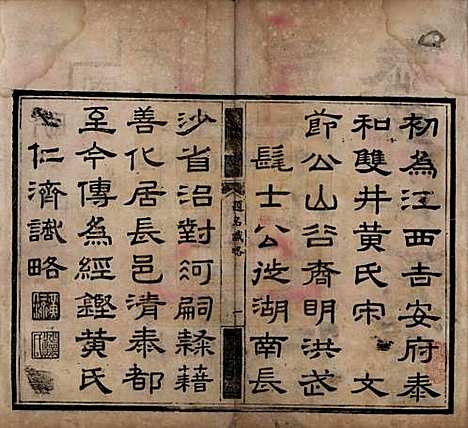 初為江西吉安府泰
和雙井黃氏宋 文
節公山谷裔明洪武
髦士公徙湖南長
沙省治對河嗣隸籍
善化居長邑清泰都
至今傳為經鏗黃氏
仁濟識略